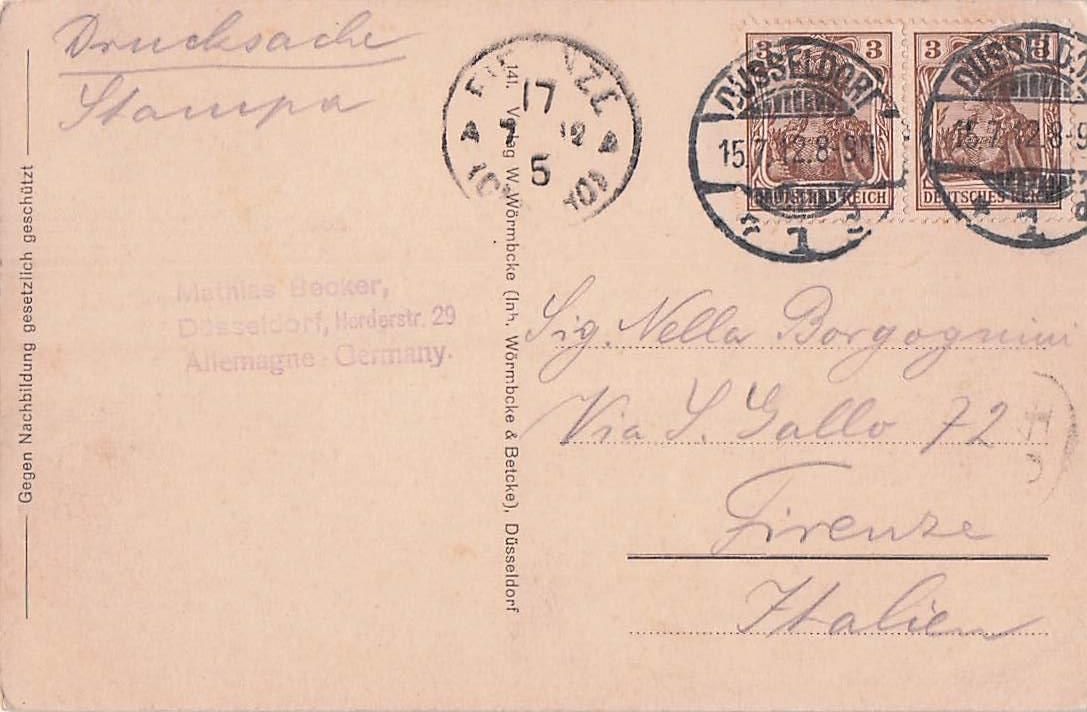 Drucksache
Stampa
FIRENZE
17
7 12
5
3 3
DEUTSCHES REICH
3
DEUTSCHES REICH
DÜSSELDORF
15.7.12.8-9N
1
DÜSSELD
15.7.12.8-9
1
Gegen Nachbildung gesetzlich geschützt
Mathias Becker,
Düsseldorf, Herderstr. 29
Allemagne-Germany.
141. Verlag W. Wörmbcke (Inh. Wörmbcke & Betcke), Düsseldorf
Sig. Nella Borgognini
Via S. Gallo 72
Firenze
Italien